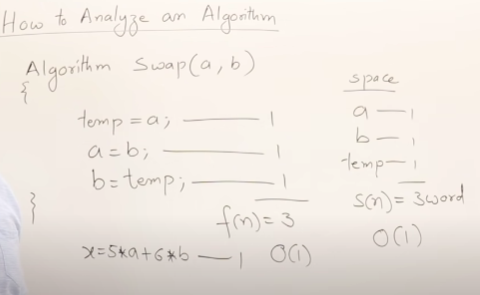 How to Analyze an Algorithm
Algorithm Swap(a,b)
{
temp = a; — 1
a = b; — 1
b = temp; — 1
}
f(n) = 3
x=5*a+6*b — 1 O(1)
space
a — 1
b — 1
temp — 1
s(n) = 3 word
O(1)